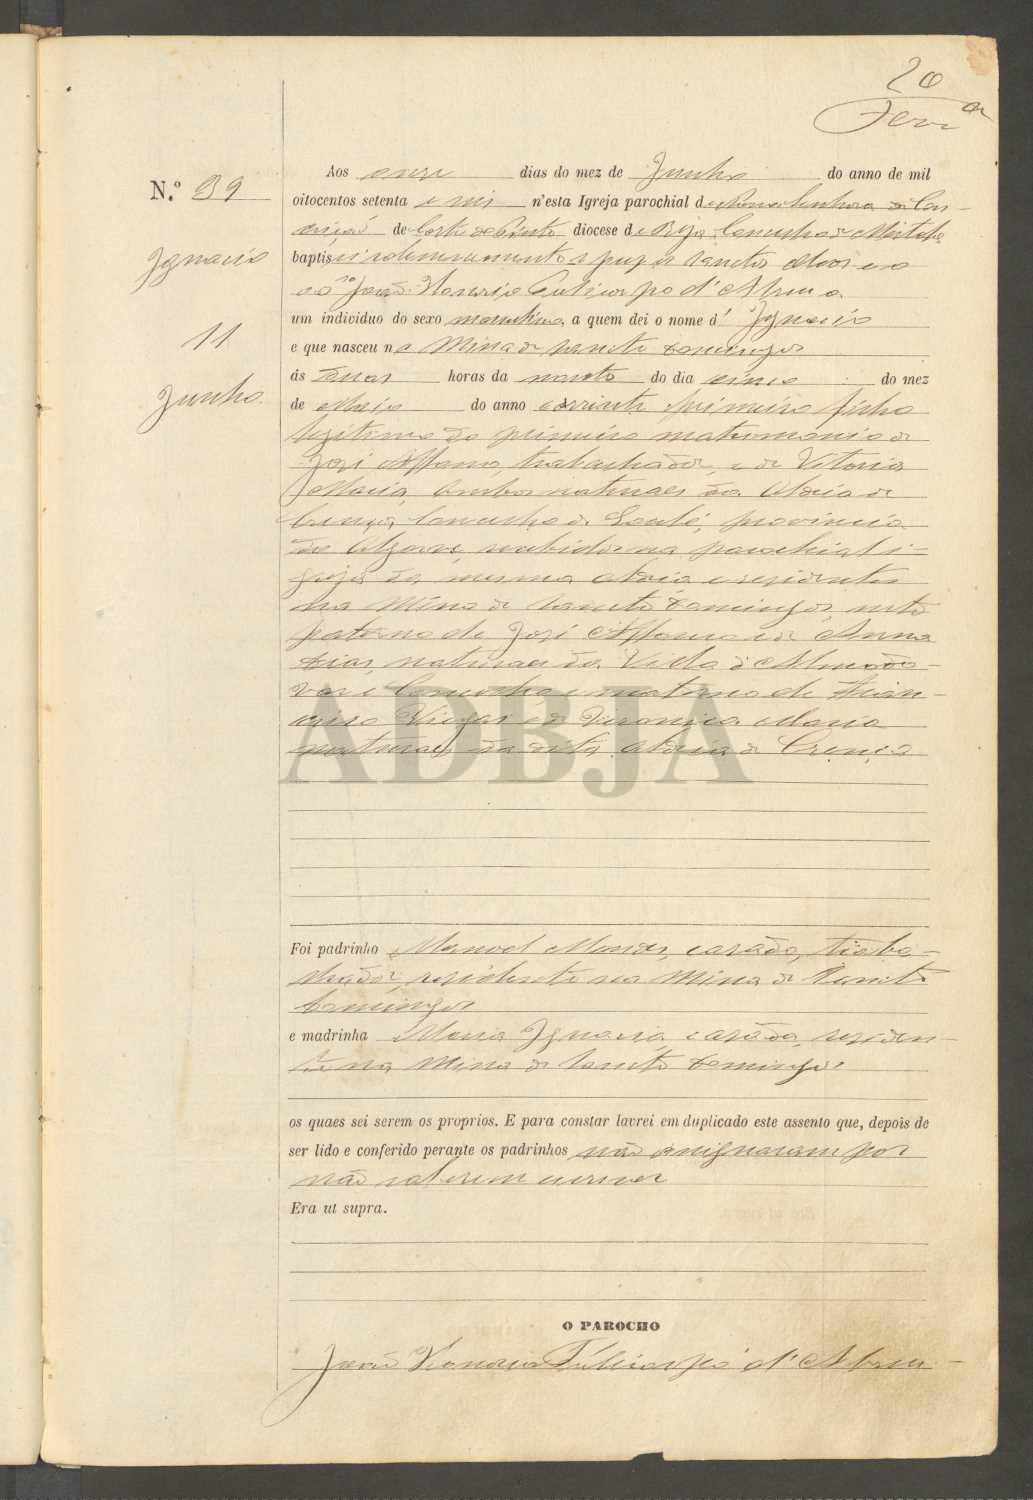 20
N.º 39
Ignacio
11
Junho
Aos onze dias do mez de Junho do anno de mil
oitocentos setenta e seis n'esta Igreja parochial de Nossa Senhora da Con-
ceição de Corte do Pinto diocese de Beja, Concelho de Mertola
baptisei solemnemente e puz os sanctos oleos eu
o P.e João Honorio Policarpo d'Abreu
um individuo do sexo masculino, a quem dei o nome d' Ignacio
e que nasceu na Mina de Sancto Domingos
ás duas horas da noute do dia cinco do mez
de Maio do anno corrente primeiro filho
legitimo do primeiro matrimonio de
José Affonso, trabalhador, e de Vitoria
Maria, ambos naturaes da Aldeia de
concelho de Loulé, provincia
do Algarve, recebidos na parochial i-
greja da mesma aldeia e residentes
na Mina de Sancto Domingos, neto
paterno de José Affonso e de Anna
Dias, naturaes da Villa de Almodo-
var e Concelho e materno de Fran-
cisco Viegas e de Veronica Maria
naturaes da dita aldeia de
ADBJA
Foi padrinho Manoel casado, traba-
lhador, residente na Mina de Sancto
Domingos
e madrinha Maria Ignacia, casada, residen-
te na Mina de Sancto Domingos
os quaes sei serem os proprios. E para constar lavrei em duplicado este assento que, depois de
ser lido e conferido perante os padrinhos não assignaram por
não saberem escrever
Era ut supra.
O PAROCHO
João Honorio Policarpo d'Abreu